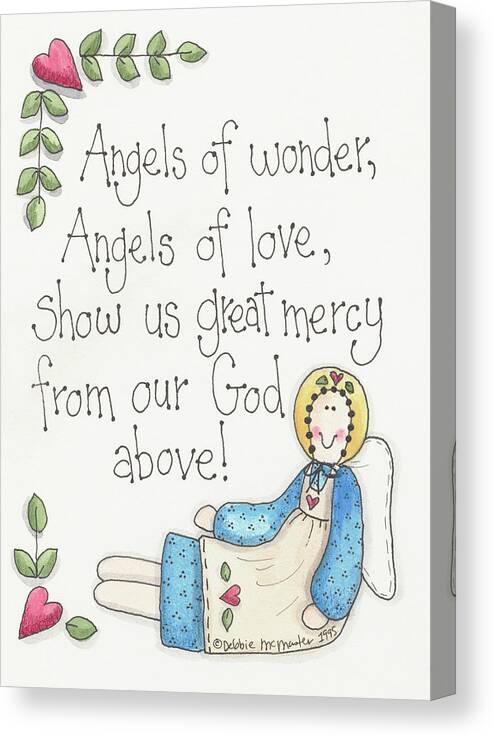 Angels of wonder,
Angels of love,
Show us great mercy
from our God
above!
©Debbie McMaster 1995